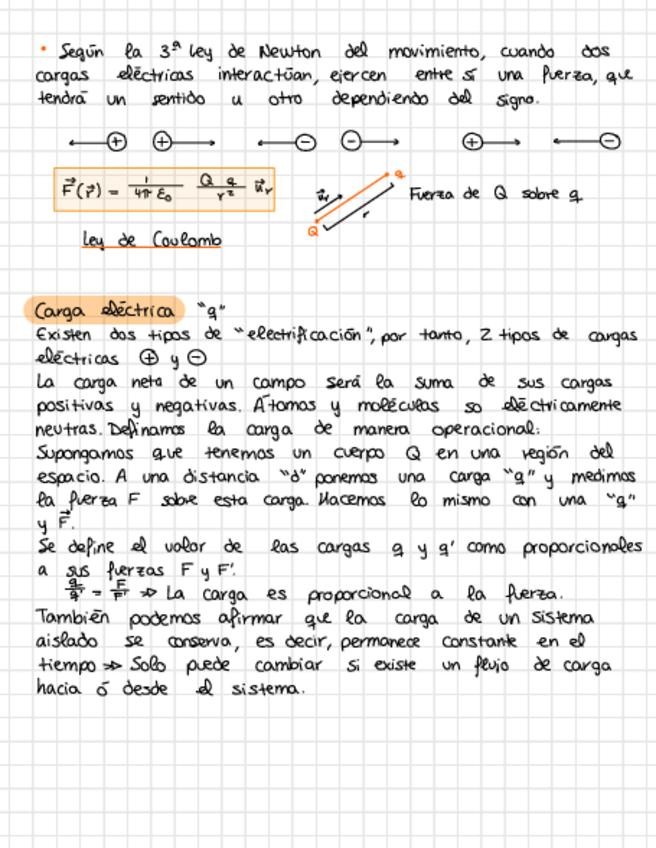 • Según la 3ª ley de Newton del movimiento, cuando dos
cargas eléctricas interactúan, ejercen entre sí una fuerza, que
tendrá un sentido u otro dependiendo del signo.
← ⊕ ⊕ → ← ⊖ ⊖ → ⊕ → ← ⊖
F⃗(r⃗) = 1/(4π ε₀) Q q/r² u⃗r
u⃗r q r Q Fuerza de Q sobre q
Ley de Coulomb
Carga eléctrica "q"
Existen dos tipos de "electrificación", por tanto, 2 tipos de cargas
eléctricas ⊕ y ⊖
La carga neta de un campo será la suma de sus cargas
positivas y negativas. Átomos y moléculas so eléctricamente
neutras. Definamos la carga de manera operacional:
Supongamos que tenemos un cuerpo Q en una región del
espacio. A una distancia "d" ponemos una carga "q" y medimos
la fuerza F sobre esta carga. Hacemos lo mismo con una "q"
y F⃗.
Se define el valor de las cargas q y q' como proporcionales
a sus fuerzas F y F'.
q/q' = F/F' ⇒ La carga es proporcional a la fuerza.
También podemos afirmar que la carga de un sistema
aislado se conserva, es decir, permanece constante en el
tiempo ⇒ Solo puede cambiar si existe un flujo de carga
hacia ó desde el sistema.